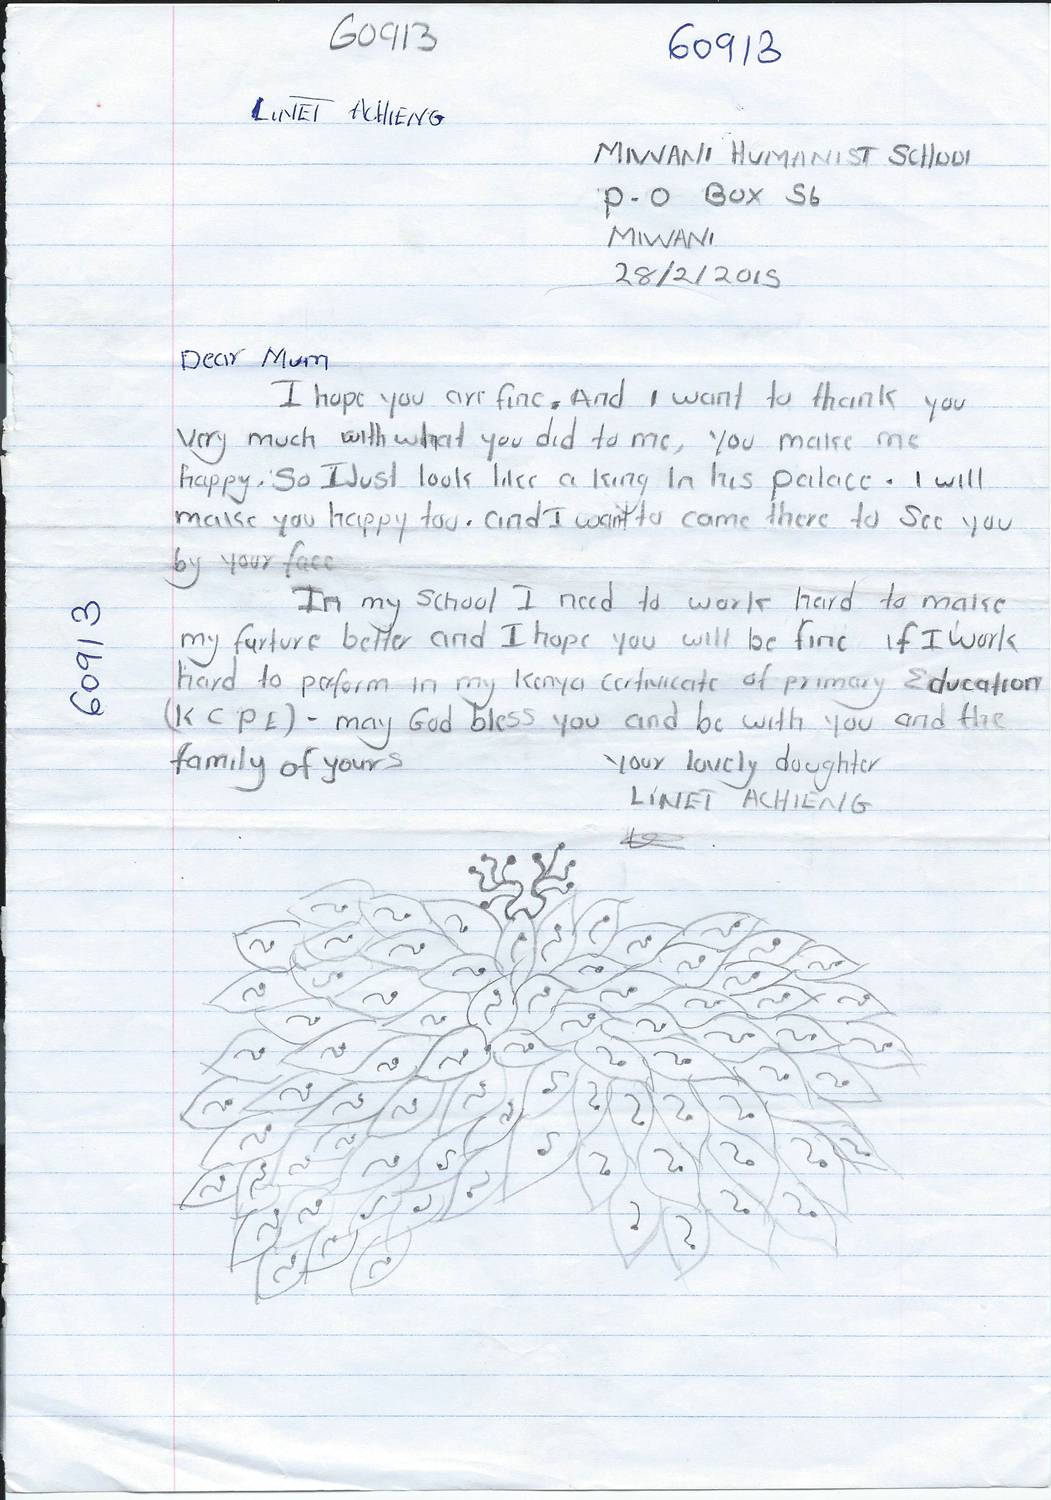 60913
60913
LINET ACHIENG
MIWANI HUMANIST SCHOOl
P.O BOX 56
MIWANI
28/2/2015
Dear Mum
I hope you are fine. And I want to thank you
very much with what you did to me, you make me
happy. So I Just look like a king in his palace. I will
make you happy too. and I want to came there to see you
by your face
In my school I need to work hard to make
my furture better and I hope you will be fine if I work
hard to perform in my Kenya certivicate of primary Education
(K C P E) - may God bless you and be with you and the
family of yours
your lovely doughter
LINET ACHIENG
60913